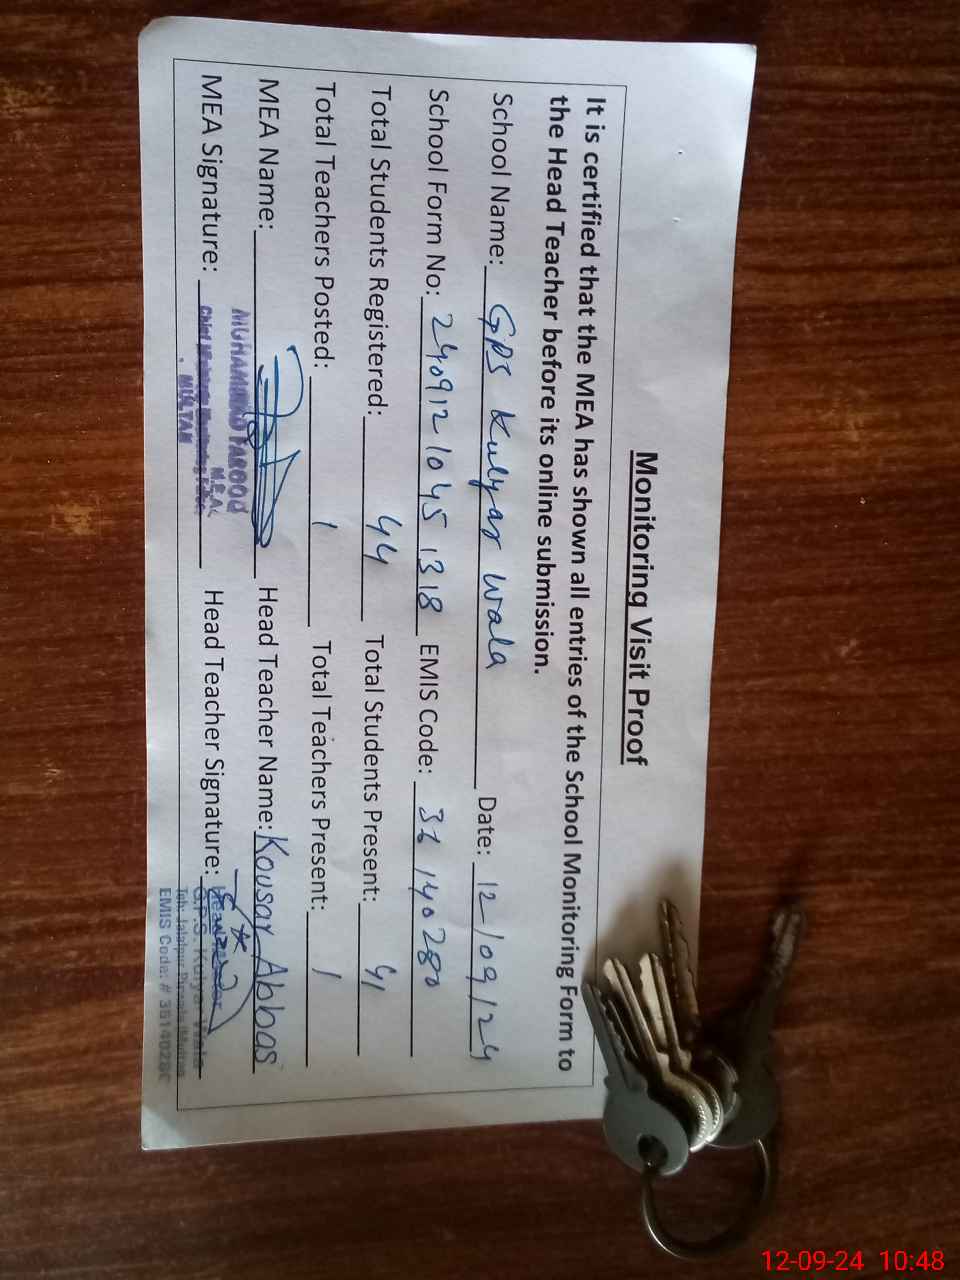 Monitoring Visit Proof
It is certified that the MEA has shown all entries of the School Monitoring Form to
the Head Teacher before its online submission.
School Name: GPS Kulyar Wala Date: 12/09/24
School Form No: 240912 1045 1318 EMIS Code: 36140280
Total Students Registered: 44 Total Students Present: 41
Total Teachers Posted: 1 Total Teachers Present: 1
MEA Name: Head Teacher Name: Kousar Abbas
MUHAMMAD FAROOQ
M.E.A
MEA Signature: Head Teacher Signature:
MULTAN
G.P.S. Kulyar Wala
Teh: Jalalpur Pirwala (Multan
EMIS Code: # 3614028
12-09-24 10:48